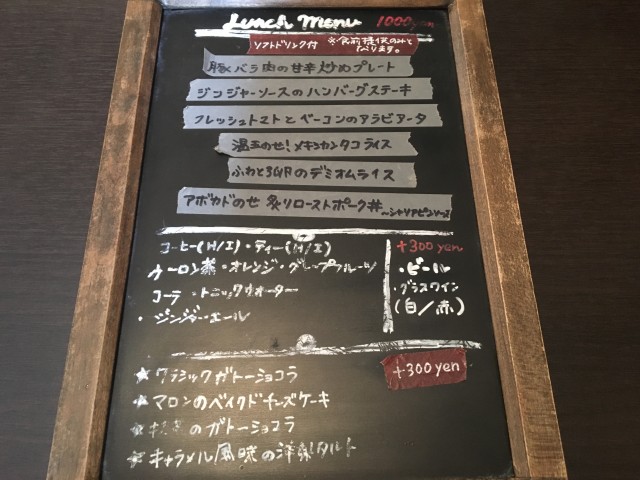 Lunch Menu 1000yen
ソフトドリンク付 ※食前提供のみと
なります。
豚バラ肉の甘辛炒めプレート
ジンジャーソースのハンバーグステーキ
フレッシュトマトとベーコンのアラビアータ
温玉のせ!メキシカンタコライス
ふわとろ卵のデミオムライス
アボカドのせ 炙りローストポーク丼 〜シャリアピンソース
コーヒー(H/I)・ティー(H/I)
ウーロン茶・オレンジ・グレープフルーツ
コーラ・トニックウォーター
・ジンジャーエール
+300yen
・ビール
・グラスワイン
(白/赤)
+300yen
★クラシックガトーショコラ
★マロンのベイクドチーズケーキ
★のガトーショコラ
★キャラメル風味の洋梨タルト